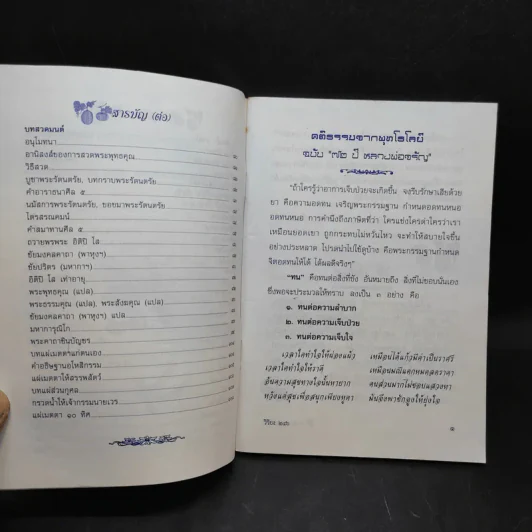 สารบัญ (ต่อ)
บทสวดมนต์
อนุโมทนา
อานิสงส์ของการสวดพระพุทธคุณ
วิธีสวด
บูชาพระรัตนตรัย, บทกราบพระรัตนตรัย
คำอาราธนาศีล ๕
นมัสการพระรัตนตรัย, ขอขมาพระรัตนตรัย
ไตรสรณคมน์
คำสมาทานศีล ๕
ถวายพรพระ อิติปิ โส
ชัยมงคลคาถา (พาหุงฯ)
ชัยปริตร (มหากาฯ)
อิติปิ โส เท่าอายุ
พระพุทธคุณ (แปล)
พระธรรมคุณ (แปล), พระสังฆคุณ (แปล)
ชัยมงคลคาถา (พาหุงฯ) แปล
มหาการุณิโก
พระคาถาชินบัญชร
บทแผ่เมตตาแก่ตนเอง
คำอธิษฐานอโหสิกรรม
แผ่เมตตาให้สรรพสัตว์
บทแผ่ส่วนกุศล
กรวดน้ำให้เจ้ากรรมนายเวร
แผ่เมตตา ๑๐ ทิศ
คติธรรมจากพุทโธโลยี
ฉบับ "๗๒ ปี หลวงพ่อจรัญ"
"ถ้าใครรู้ว่าอาการเจ็บป่วยจะเกิดขึ้น จงรีบรักษาเสียด้วย
ยา คือความอดทน เจริญพระกรรมฐาน กำหนดอดทนหนอ
อดทนหนอ การคำนึงถึงภาษิตที่ว่า ใครแช่งใครด่าใครว่าเรา
เหมือนยอดเขา ถูกกระทบไม่หวั่นไหว จะทำให้สบายใจขึ้น
อย่างประหลาด โปรดนำไปใช้ดูบ้าง คือพระกรรมฐานกำหนด
จิตอดทนให้ได้ ได้ผลดีจริงๆ"
"ทน" คือทนต่อสิ่งที่ชัง อันหมายถึง สิ่งที่ไม่ชอบนั่นเอง
ซึ่งพอจะประมวลให้ทราบ ลงเป็น ๓ อย่าง คือ
๑. ทนต่อความลำบาก
๒. ทนต่อความเจ็บป่วย
๓. ทนต่อความเจ็บใจ
เวลาใดทำใจให้ผ่องแผ้ว เหมือนได้แก้วมีค่าเป็นราศรี
เวลาใดทำใจให้ราคี เหมือนมณีแตกหมดลดราคา
อันความสุขทางใจนั้นหายาก คนส่วนมากไม่ชอบแสวงหา